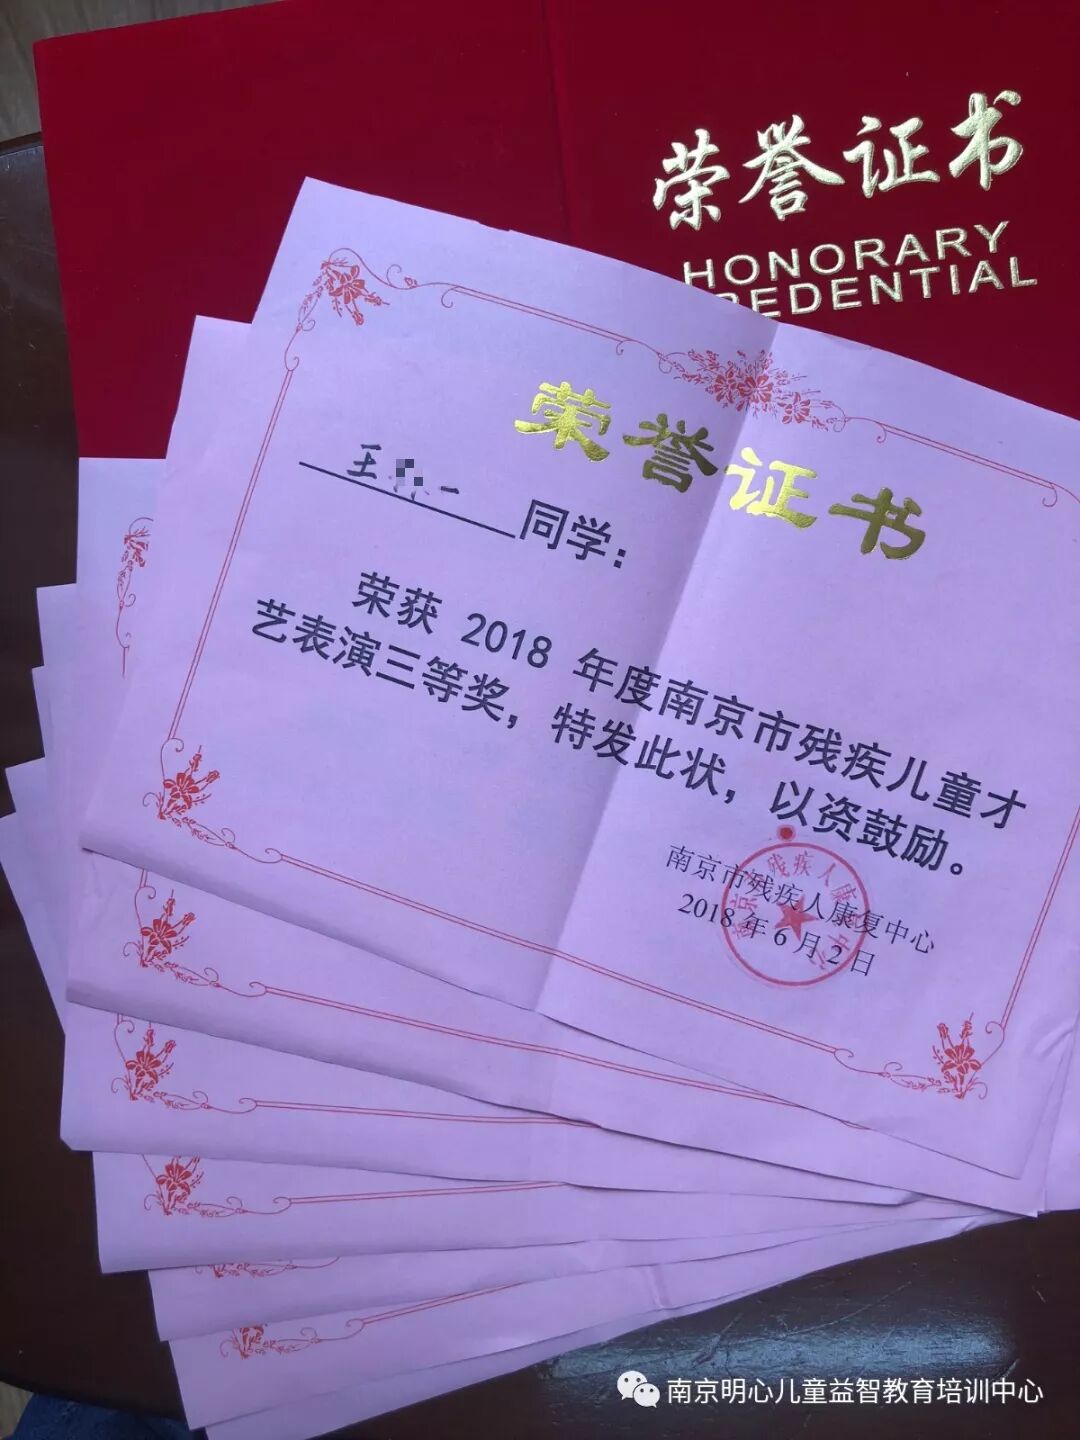 荣誉证书
HONORARY
CREDENTIAL
荣誉证书
王 一 同学：
荣获 2018 年度南京市残疾儿童才
艺表演三等奖，特发此状，以资鼓励。
南京市残疾人康复中心
2018年6月2日
南京明心儿童益智教育培训中心